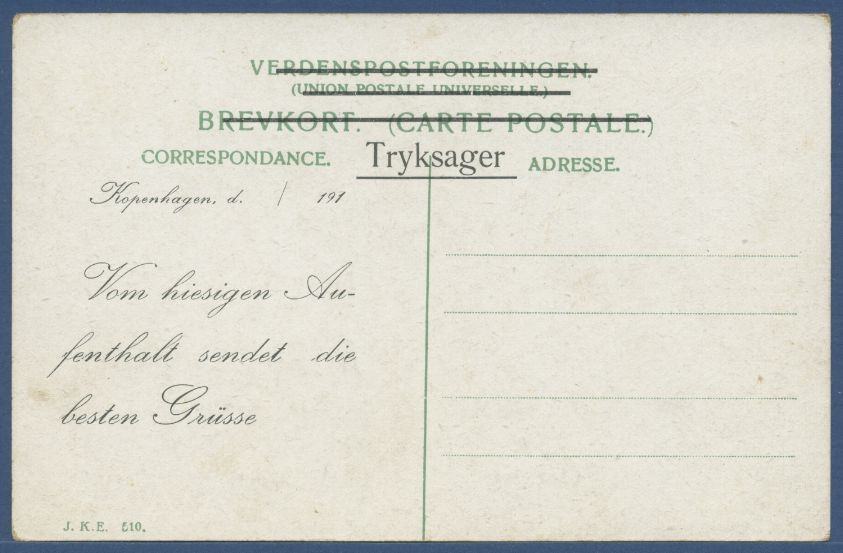 VERDENSPOSTFORENINGEN.
(UNION POSTALE UNIVERSELLE.)
BREVKORT. (CARTE POSTALE.)
CORRESPONDANCE. Tryksager ADRESSE.
Kopenhagen, d. / 191
Vom hiesigen Au-
fenthalt sendet die
besten Grüsse
J. K. E. 510.